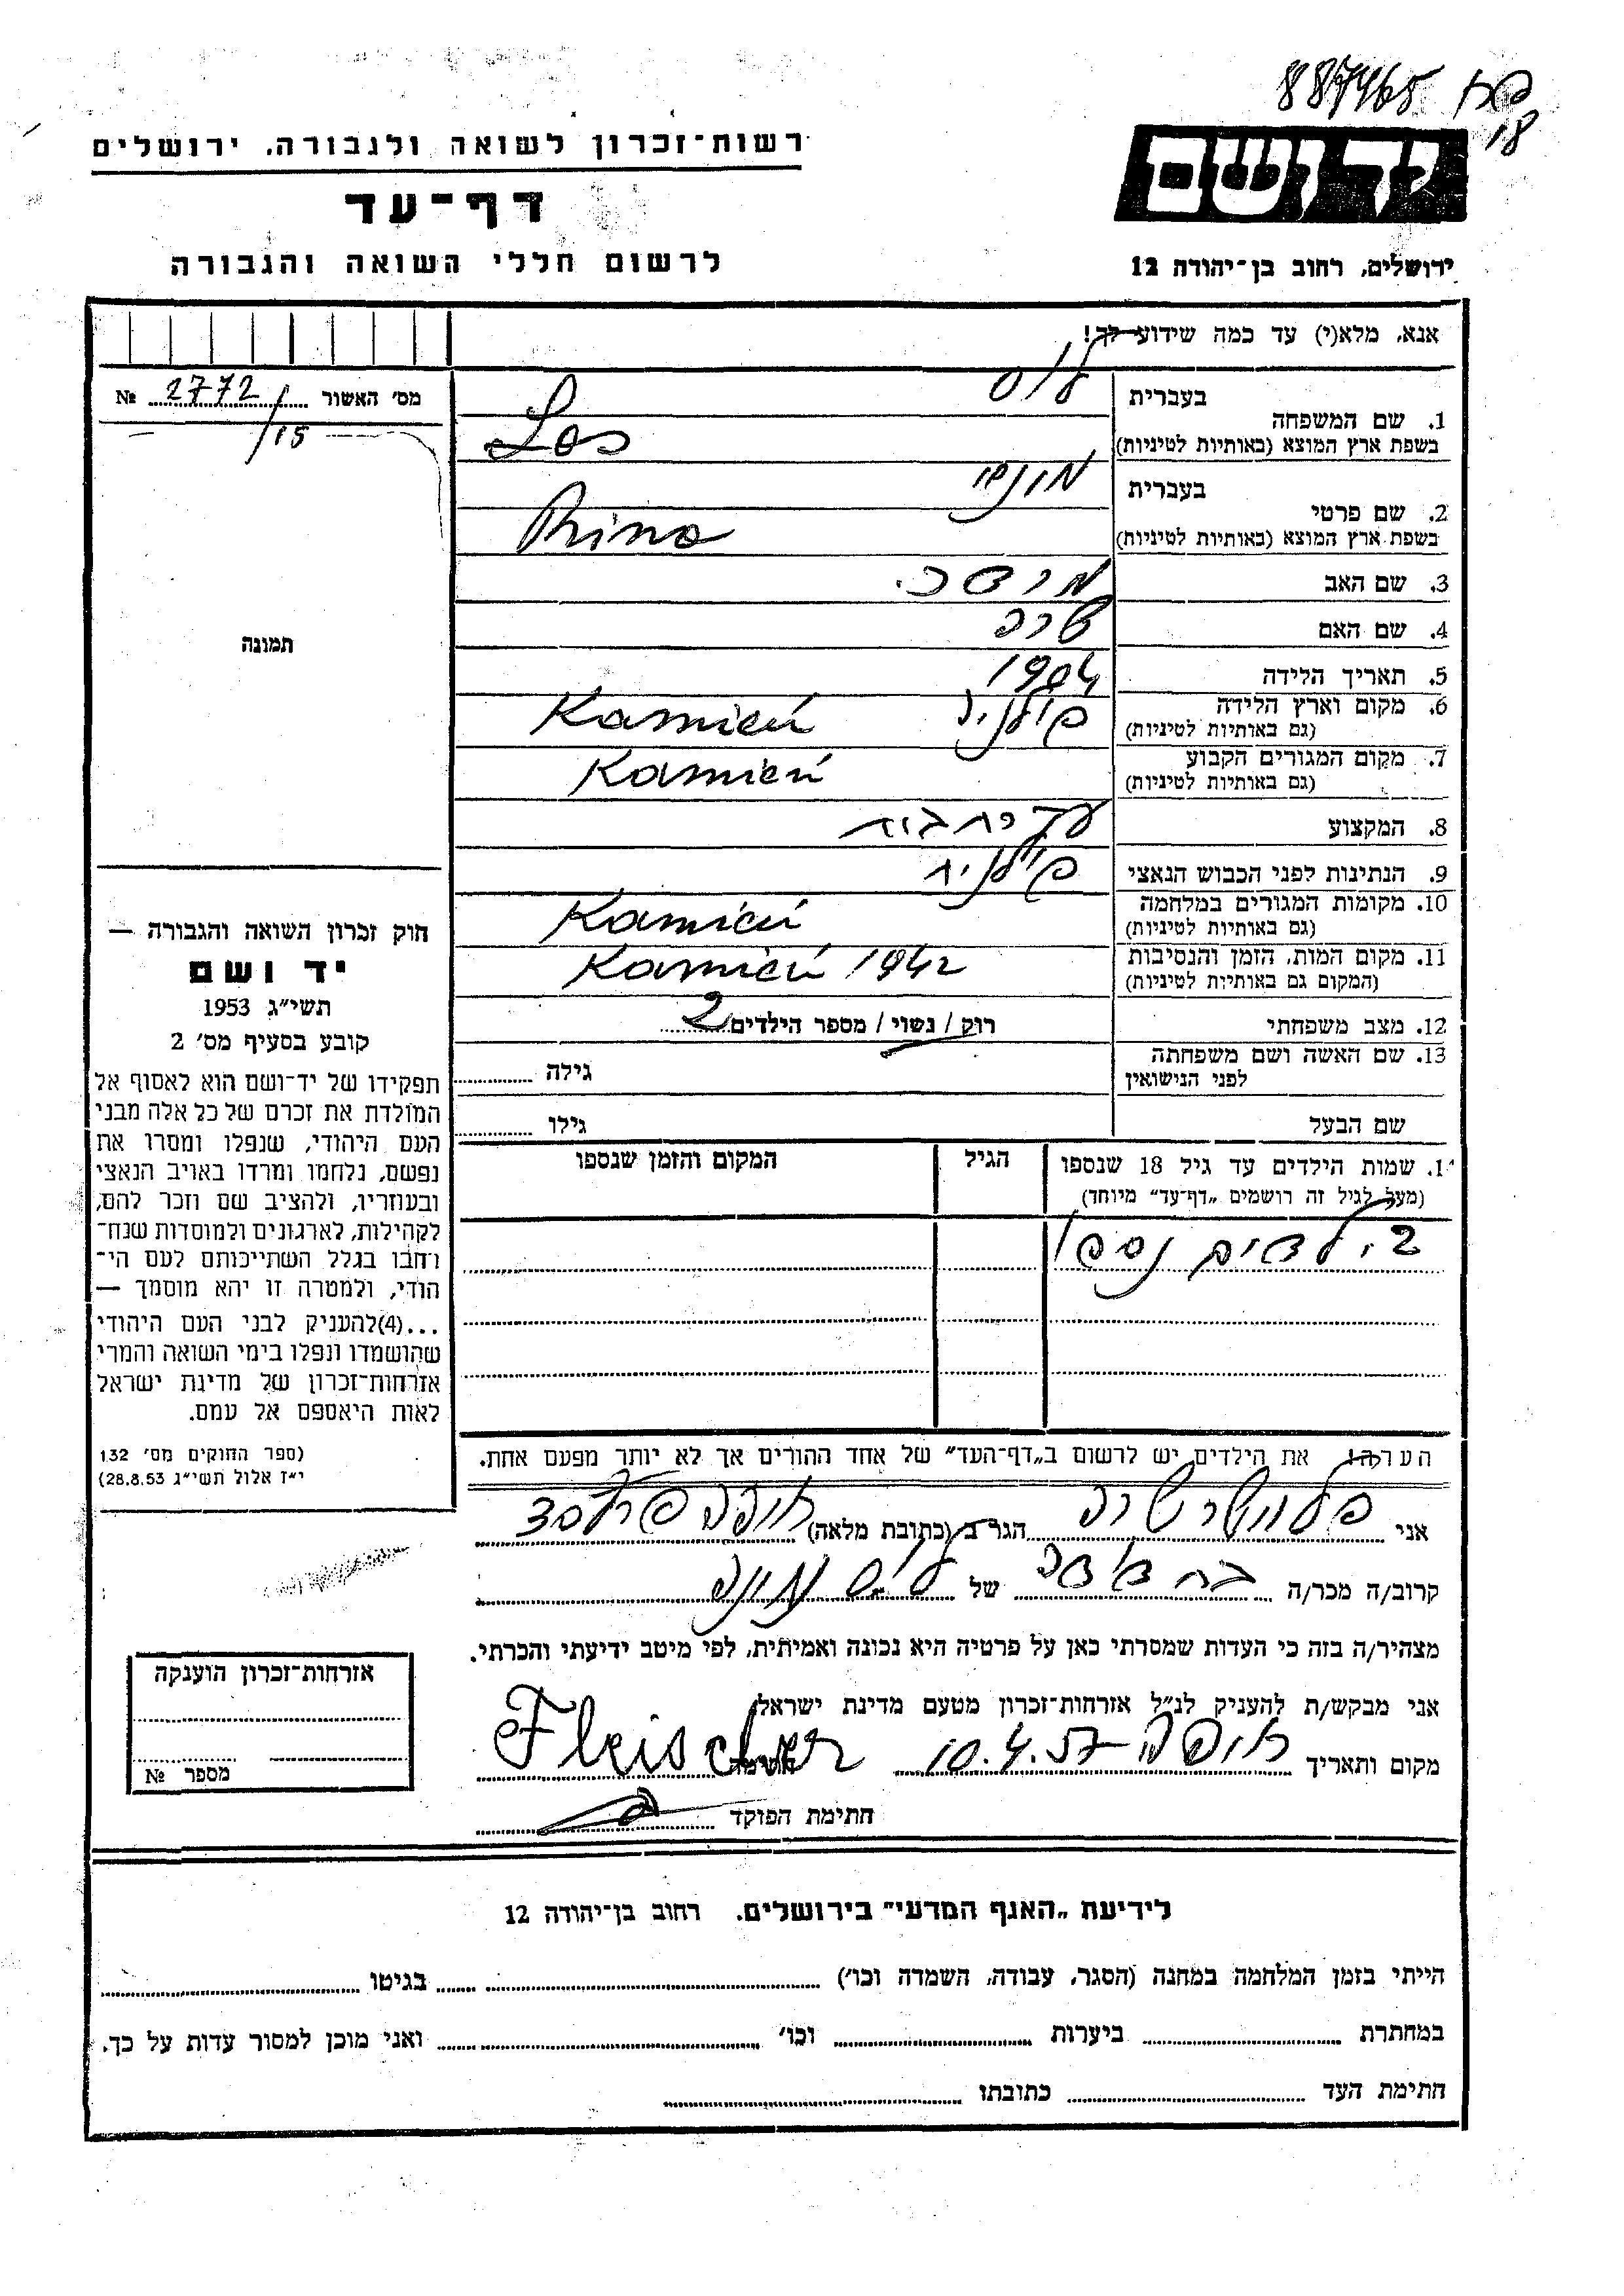 887465
18
ידושם
רשות־זכרון לשואה ולגבורה, ירושלים
דף־עד
לרשום חללי השואה והגבורה
ירושלים, רחוב בן־יהודה 12
אנא, מלא(י) עד כמה שידוע לך!
מס׳ האשור 2772 №
/15
תמונה
1. שם המשפחה בעברית לוס
בשפת ארץ המוצא (באותיות לטיניות) Los
2. שם פרטי בעברית
בשפת ארץ המוצא (באותיות לטיניות)
3. שם האב מרדכי
4. שם האם שרה
5. תאריך הלידה 1904
6. מקום וארץ הלידה פולניה Kamień
(גם באותיות לטיניות)
7. מקום המגורים הקבוע Kamień
(גם באותיות לטיניות)
8. המקצוע עקרת בית
9. הנתינות לפני הכבוש הנאצי פולנית
10. מקומות המגורים במלחמה Kamień
(גם באותיות לטיניות)
11. מקום המות, הזמן והנסיבות Kamień 1942
(המקום גם באותיות לטיניות)
12. מצב משפחתי רוק / נשוי / מספר הילדים 2
13. שם האשה ושם משפחתה גילה
לפני הנישואין
שם הבעל גילו
1. שמות הילדים עד גיל 18 שנספו הגיל המקום והזמן שנספו
(מעל לגיל זה רושמים „דף־עד״ מיוחד)
2 ילדים נספו
הערה: את הילדים יש לרשום ב„דף־העד״ של אחד ההורים אך לא יותר מפעם אחת.
אני פליישר שרה הגר ב (כתובת מלאה) חיפה
קרוב/ה מכר/ה בת דודה של לוס
מצהיר/ה בזה כי העדות שמסרתי כאן על פרטיה היא נכונה ואמיתית, לפי מיטב ידיעתי והכרתי.
אני מבקש/ת להעניק לנ״ל אזרחות־זכרון מטעם מדינת ישראל
מקום ותאריך חיפה 10.4.57 Fleischer
חתימת הפוקד
חוק זכרון השואה והגבורה —
יד ושם
תשי״ג 1953
קובע בסעיף מס׳ 2
תפקידו של יד־ושם הוא לאסוף אל
המולדת את זכרם של כל אלה מבני
העם היהודי, שנפלו ומסרו את
נפשם, נלחמו ומרדו באויב הנאצי
ובעוזריו, ולהציב שם וזכר להם,
לקהילות, לארגונים ולמוסדות שנח־
רחבו בגלל השתייכותם לעם הי־
הודי, ולמטרה זו יהא מוסמך —
...(4)להעניק לבני העם היהודי
שהושמדו ונפלו בימי השואה והמרי
אזרחות־זכרון של מדינת ישראל
לאות היאספם אל עמם.
(ספר החוקים מס׳ 132
י״ז אלול תשי״ג 28.8.53)
אזרחות־זכרון הוענקה
מספר №
לידיעת „האגף המדעי״ בירושלים, רחוב בן־יהודה 12
הייתי בזמן המלחמה במחנה (הסגר, עבודה, השמדה וכו׳) בגיטו
במחתרת ביערות וכו׳ ואני מוכן למסור עדות על כך.
חתימת העד כתובתו